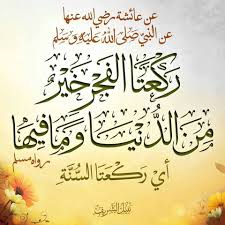 عن عائشة رضي الله عنها
عن النبي صَلَّى اللهُ عَلَيْهِ وَسَلَّم
رَكْعَتَا الْفَجْرِ خَيْرٌ
مِنَ الدُّنْيَا وَمَا فِيهَا
رواه مسلم
أي رَكْعَتَا السُّنَّةِ
نبيل الشريف